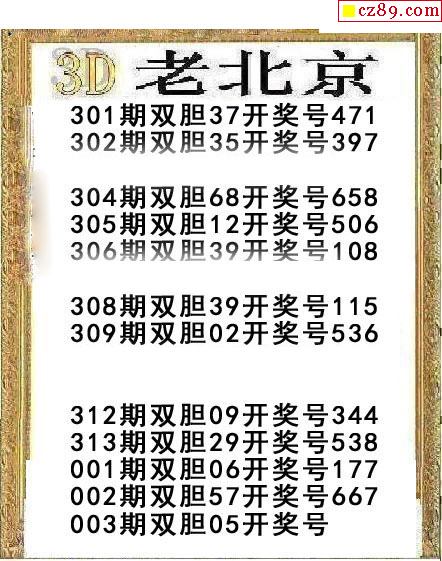 cz89.com
3D 老北京
301期双胆37开奖号471
302期双胆35开奖号397
304期双胆68开奖号658
305期双胆12开奖号506
306期双胆39开奖号108
308期双胆39开奖号115
309期双胆02开奖号536
312期双胆09开奖号344
313期双胆29开奖号538
001期双胆06开奖号177
002期双胆57开奖号667
003期双胆05开奖号